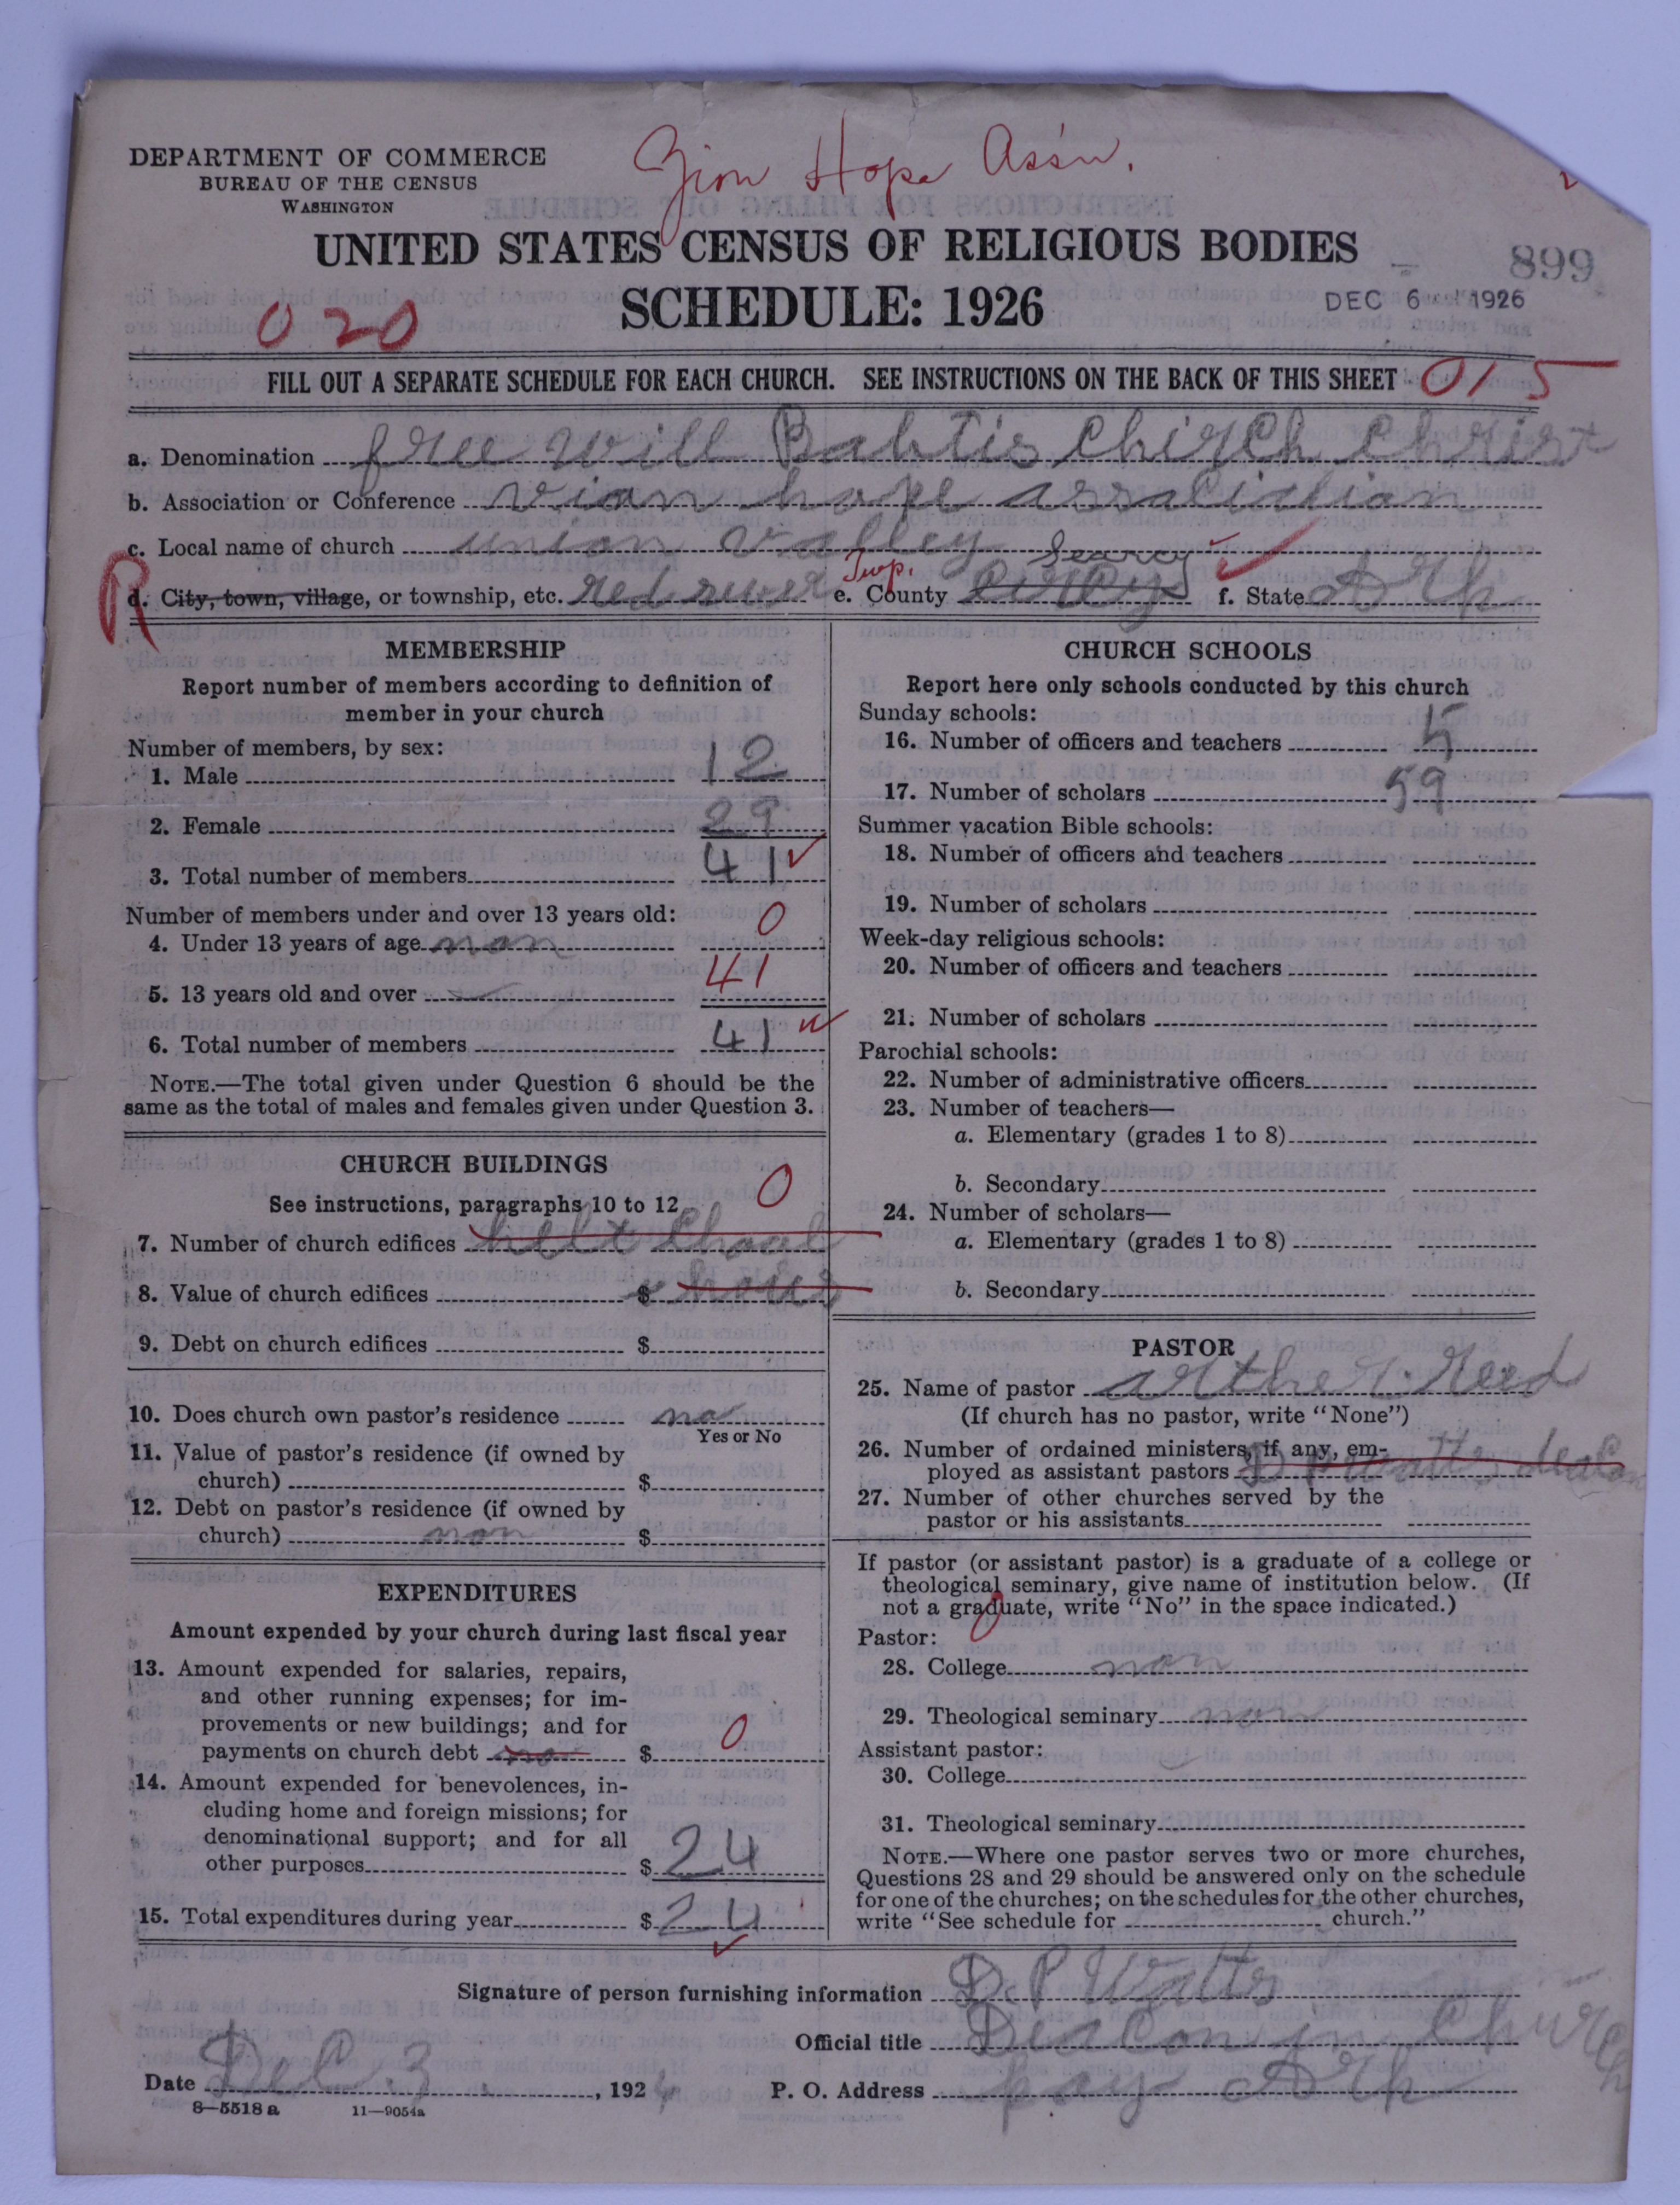 Zion Hope Ass'n.
DEPARTMENT OF COMMERCE
BUREAU OF THE CENSUS
WASHINGTON
UNITED STATES CENSUS OF RELIGIOUS BODIES
899
SCHEDULE: 1926
DEC 6 1926
020
FILL OUT A SEPARATE SCHEDULE FOR EACH CHURCH. SEE INSTRUCTIONS ON THE BACK OF THIS SHEET
015
a. Denomination free will Babtis Chirch Christ
b. Association or Conference vion hope
c. Local name of church union valley
Searcy
Twp.
R
d. City, town, village, or township, etc. red river e. County f. State Ark
MEMBERSHIP
Report number of members according to definition of
member in your church
Number of members, by sex:
1. Male 12
2. Female 29
3. Total number of members 41
Number of members under and over 13 years old:
0
4. Under 13 years of age non
41
5. 13 years old and over
6. Total number of members 41
NOTE.—The total given under Question 6 should be the
same as the total of males and females given under Question 3.
CHURCH BUILDINGS
See instructions, paragraphs 10 to 12
0
7. Number of church edifices
8. Value of church edifices $
9. Debt on church edifices $
10. Does church own pastor's residence no
Yes or No
11. Value of pastor's residence (if owned by
church) $
12. Debt on pastor's residence (if owned by
church) non $
EXPENDITURES
Amount expended by your church during last fiscal year
13. Amount expended for salaries, repairs,
and other running expenses; for im-
provements or new buildings; and for
payments on church debt no $ 0
14. Amount expended for benevolences, in-
cluding home and foreign missions; for
denominational support; and for all
other purposes $ 24
15. Total expenditures during year $ 24
CHURCH SCHOOLS
Report here only schools conducted by this church
Sunday schools:
16. Number of officers and teachers 5
17. Number of scholars 59
Summer vacation Bible schools:
18. Number of officers and teachers
19. Number of scholars
Week-day religious schools:
20. Number of officers and teachers
21. Number of scholars
Parochial schools:
22. Number of administrative officers
23. Number of teachers—
a. Elementary (grades 1 to 8)
b. Secondary
24. Number of scholars—
a. Elementary (grades 1 to 8)
b. Secondary
PASTOR
25. Name of pastor arther Reed
(If church has no pastor, write "None")
26. Number of ordained ministers, if any, em-
ployed as assistant pastors D P Watts deacon
27. Number of other churches served by the
pastor or his assistants
If pastor (or assistant pastor) is a graduate of a college or
theological seminary, give name of institution below. (If
not a graduate, write "No" in the space indicated.)
Pastor: 0
28. College non
29. Theological seminary non
Assistant pastor:
30. College
31. Theological seminary
NOTE.—Where one pastor serves two or more churches,
Questions 28 and 29 should be answered only on the schedule
for one of the churches; on the schedules for the other churches,
write "See schedule for church."
Signature of person furnishing information D. P Watts
Official title Deacon in Church
Date Dec 3, 192 P. O. Address Ark
8—5518 a 11—9054a